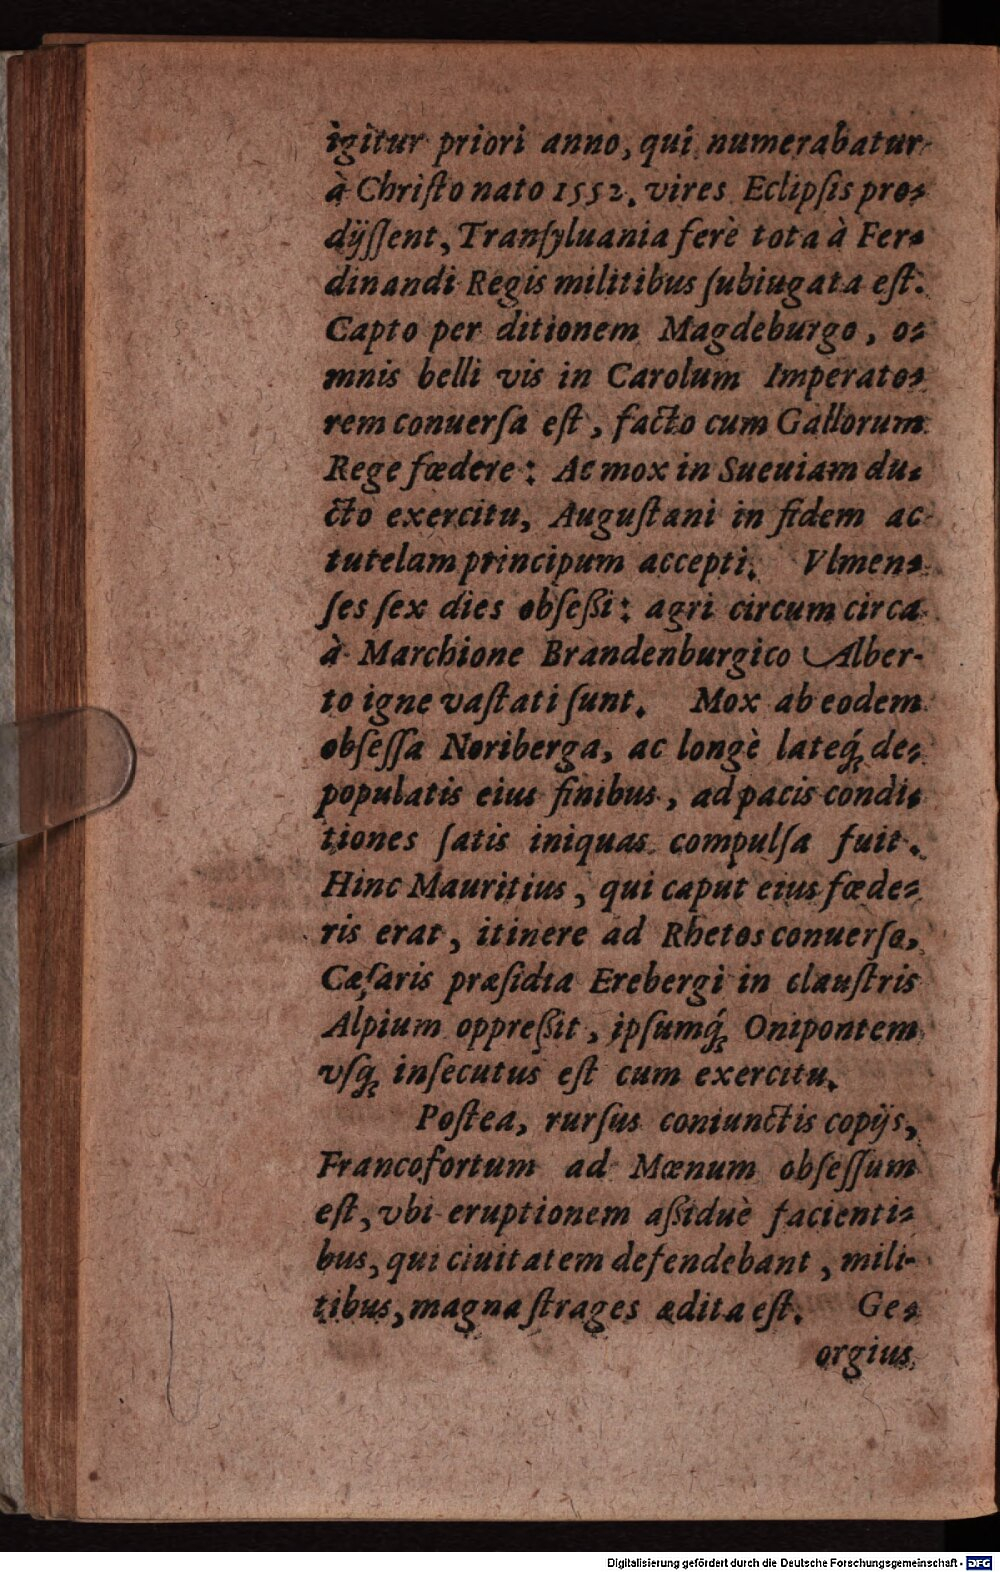 igitur priori anno, qui numerabatur
à Chriſto nato 1552. vires Eclipſis pro⸗
dijſſent, Tranſyluania ferè tota à Fer⸗
dinandi Regis militibus ſubiugata eſt.
Capto per ditionem Magdeburgo, o⸗
mnis belli vis in Carolum Imperato⸗
rem conuerſa eſt, facto cum Gallorum
Rege fœdere: Ac mox in Sueuiam du⸗
cto exercitu, Auguſtani in fidem ac
tutelam principum accepti. Vlmen⸗
ſes ſex dies obſeßi: agri circum circa
à Marchione Brandenburgico Alber-
to igne vaſtati ſunt. Mox ab eodem
obſeſſa Noriberga, ac longè lateq́ꝫ de⸗
populatis eius finibus, ad pacis condi⸗
tiones ſatis iniquas compulſa fuit.
Hinc Mauritius, qui caput eius fœde⸗
ris erat, itinere ad Rhetos conuerſo,
Cæſaris præſidia Erebergi in clauſtris
Alpium oppreßit, ipſumq́ꝫ Onipontem
vſq́ꝫ inſecutus eſt cum exercitu.
Poſtea, rurſus coniunctis copijs,
Francofortum ad Mœnum obſeſſum
eſt, vbi eruptionem aßiduè facienti⸗
bus, qui ciuitatem defendebant, mili-
tibus, magna ſtrages ædita eſt. Ge⸗
orgius
Digitalisierung gefördert durch die Deutsche Forschungsgemeinschaft - DFG